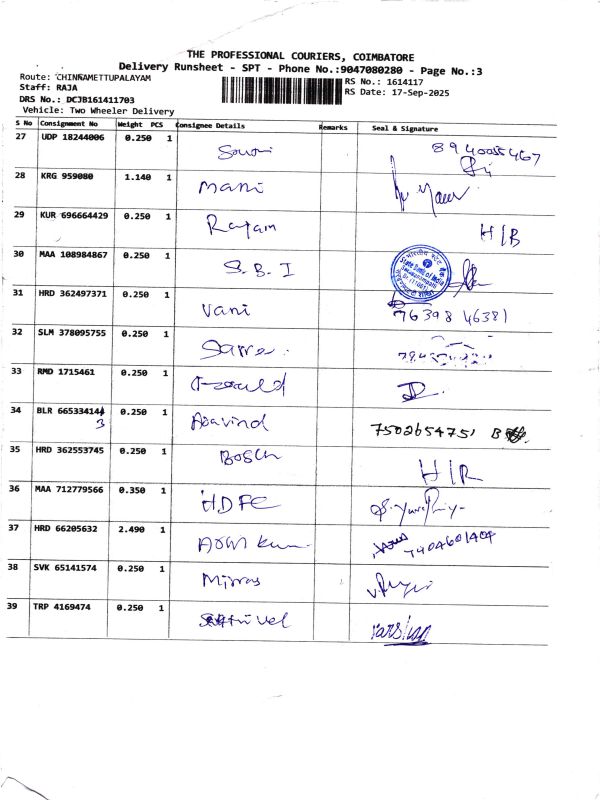 THE PROFESSIONAL COURIERS, COIMBATORE
Delivery Runsheet - SPT - Phone No.:9047080280 - Page No.:3
Route: CHINNAMETTUPALAYAM
RS No.: 1614117
Staff: RAJA
RS Date: 17-Sep-2025
DRS No.: DCJB161411703
Vehicle: Two Wheeler Delivery
S No Consignment No Weight PCS Consignee Details Remarks Seal & Signature
27 UDP 18244006 0.250 1 8940055467
28 KRG 959080 1.140 1 Mani
29 KUR 696664429 0.250 1 Rayam H/B
30 MAA 108984867 0.250 1 S.B.I
31 HRD 362497371 0.250 1 Vani 76398 46381
32 SLM 378095755 0.250 1
33 RMD 1715461 0.250 1
34 BLR 66533414 3 0.250 1 Aravind 7502654751
35 HRD 362553745 0.250 1 Bosch H/R
36 MAA 712779566 0.350 1 HDFC
37 HRD 66205632 2.490 1 Arun kum 7404601404
38 SVK 65141574 0.250 1
39 TRP 4169474 0.250 1